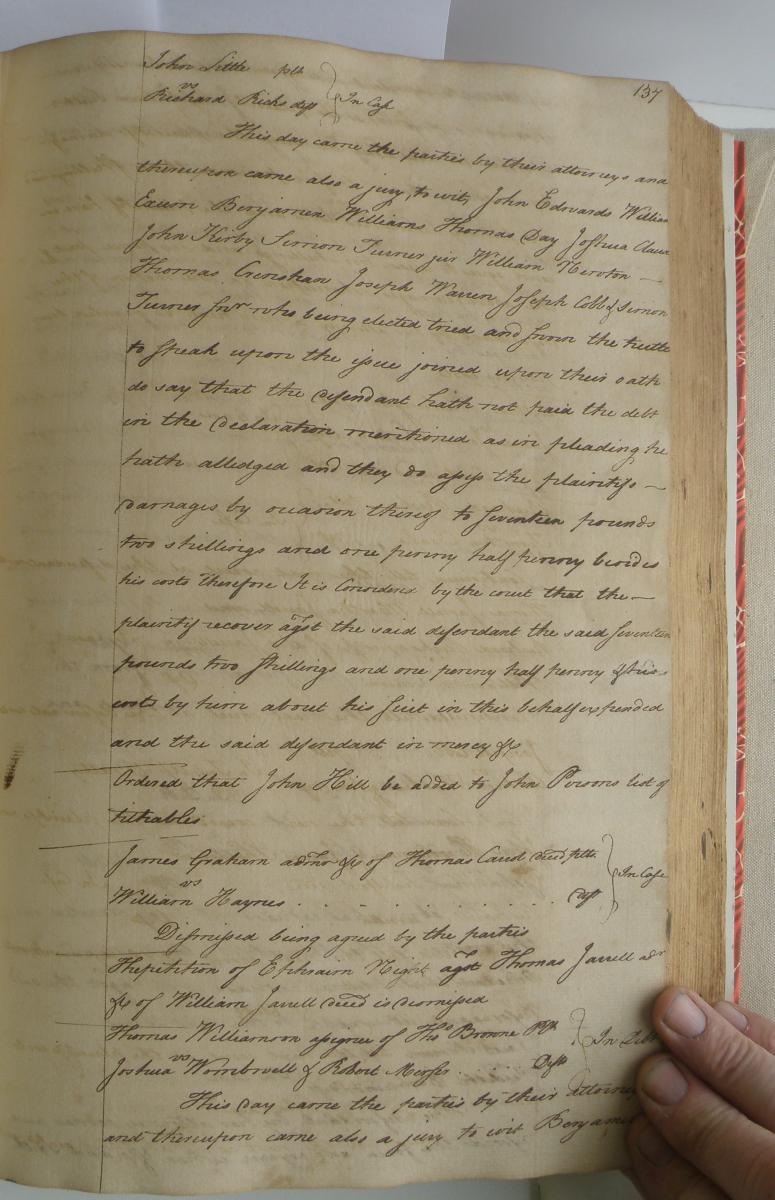 137
John Little plt
vs } In Case
Richard Ricks deft
This day came the parties by their attorneys and
thereupon came also a jury, to wit, John Edwards William
Exum Benjamin Williams Thomas Day Joshua
John Kirby Simon Turner jur William Newton —
Thomas Crenshaw Joseph Warren Joseph Cobb & Simon
Turner Snr who being elected tried and sworn the truth
to speak upon the issue joined upon their oath
do say that the defendant hath not paid the debt
in the Declaration mentioned as in pleading he
hath alledged and they do assess the plaintifs —
damages by occasion thereof to seventeen pounds
two shillings and one penny half penny besides
his costs therefore It is Considered by the court that the —
plaintif recover agst the said defendant the said seventeen
pounds two shillings and one penny half penny & his
costs by him about his suit in this behalf expended
and the said defendant in mercy &c
Ordered that John Hill be added to John Persons list of
tithables
James Graham admor &c of Thomas decd plts.
vs } In Case
William Haynes . . . . . . . . . . deft
Dismissed being agreed by the parties
The petition of Ephraim Night agst Thomas Jarrell adr
&c of William Jarrell decd is dismissed
Thomas Williamson assignee of Thos Browne Plt
vs } In Debt
Joshua Wombwell & Robert Merser . . . . . Defts
This day came the parties by their attorneys
and thereupon came also a jury to wit Benjamin